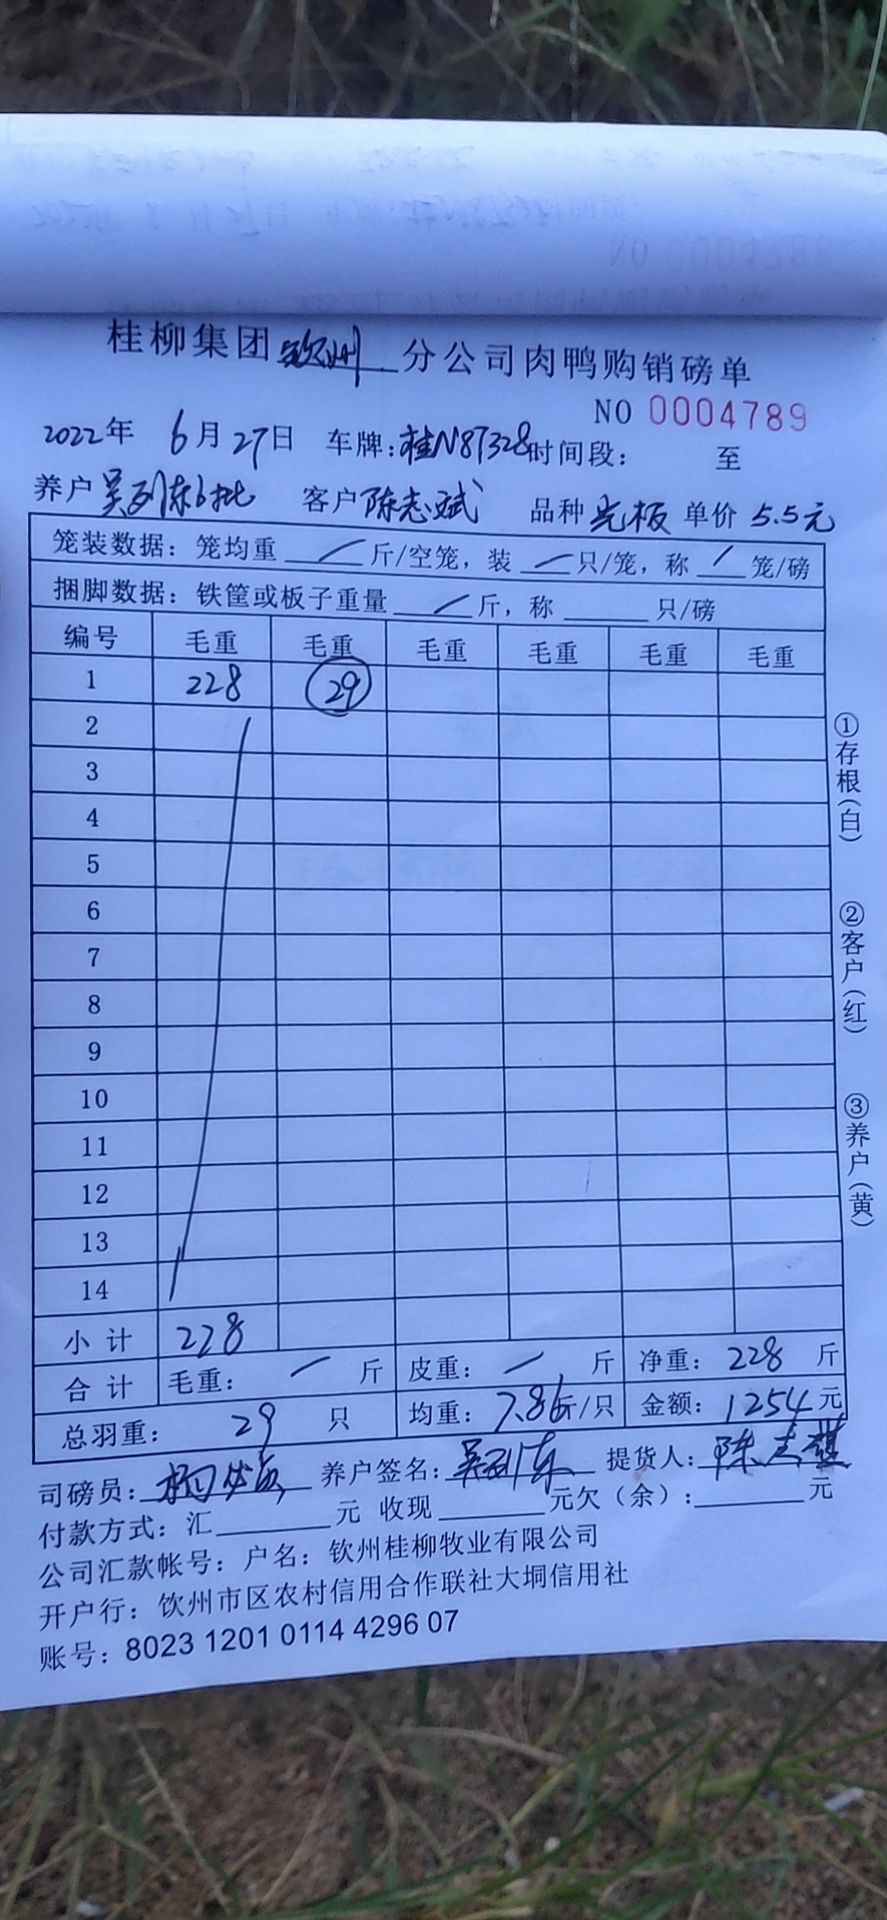 桂柳集团钦州分公司肉鸭购销磅单
NO 0004789
2022年 6月27日 车牌:桂N87328时间段: 至
养户吴列东6批 客户陈志斌 品种光板 单价5.5元
笼装数据:笼均重/斤/空笼,装/只/笼,称/笼/磅
捆脚数据:铁筐或板子重量/斤,称 只/磅
编号 毛重 毛重 毛重 毛重 毛重 毛重
1 228 29
2
3
4
5
6
7
8
9
10
11
12
13
14
小计 228
合计 毛重: / 斤 皮重: / 斤 净重: 228 斤
总羽重: 29 只 均重: 7.86斤/只 金额: 1254元
司磅员: 养户签名:吴列东 提货人:陈志
付款方式:汇 元 收现 元欠(余): 元
公司汇款帐号:户名:钦州桂柳牧业有限公司
开户行:钦州市区农村信用合作联社大垌信用社
账号:8023 1201 0114 4296 07
①存根(白)
②客户(红)
③养户(黄)